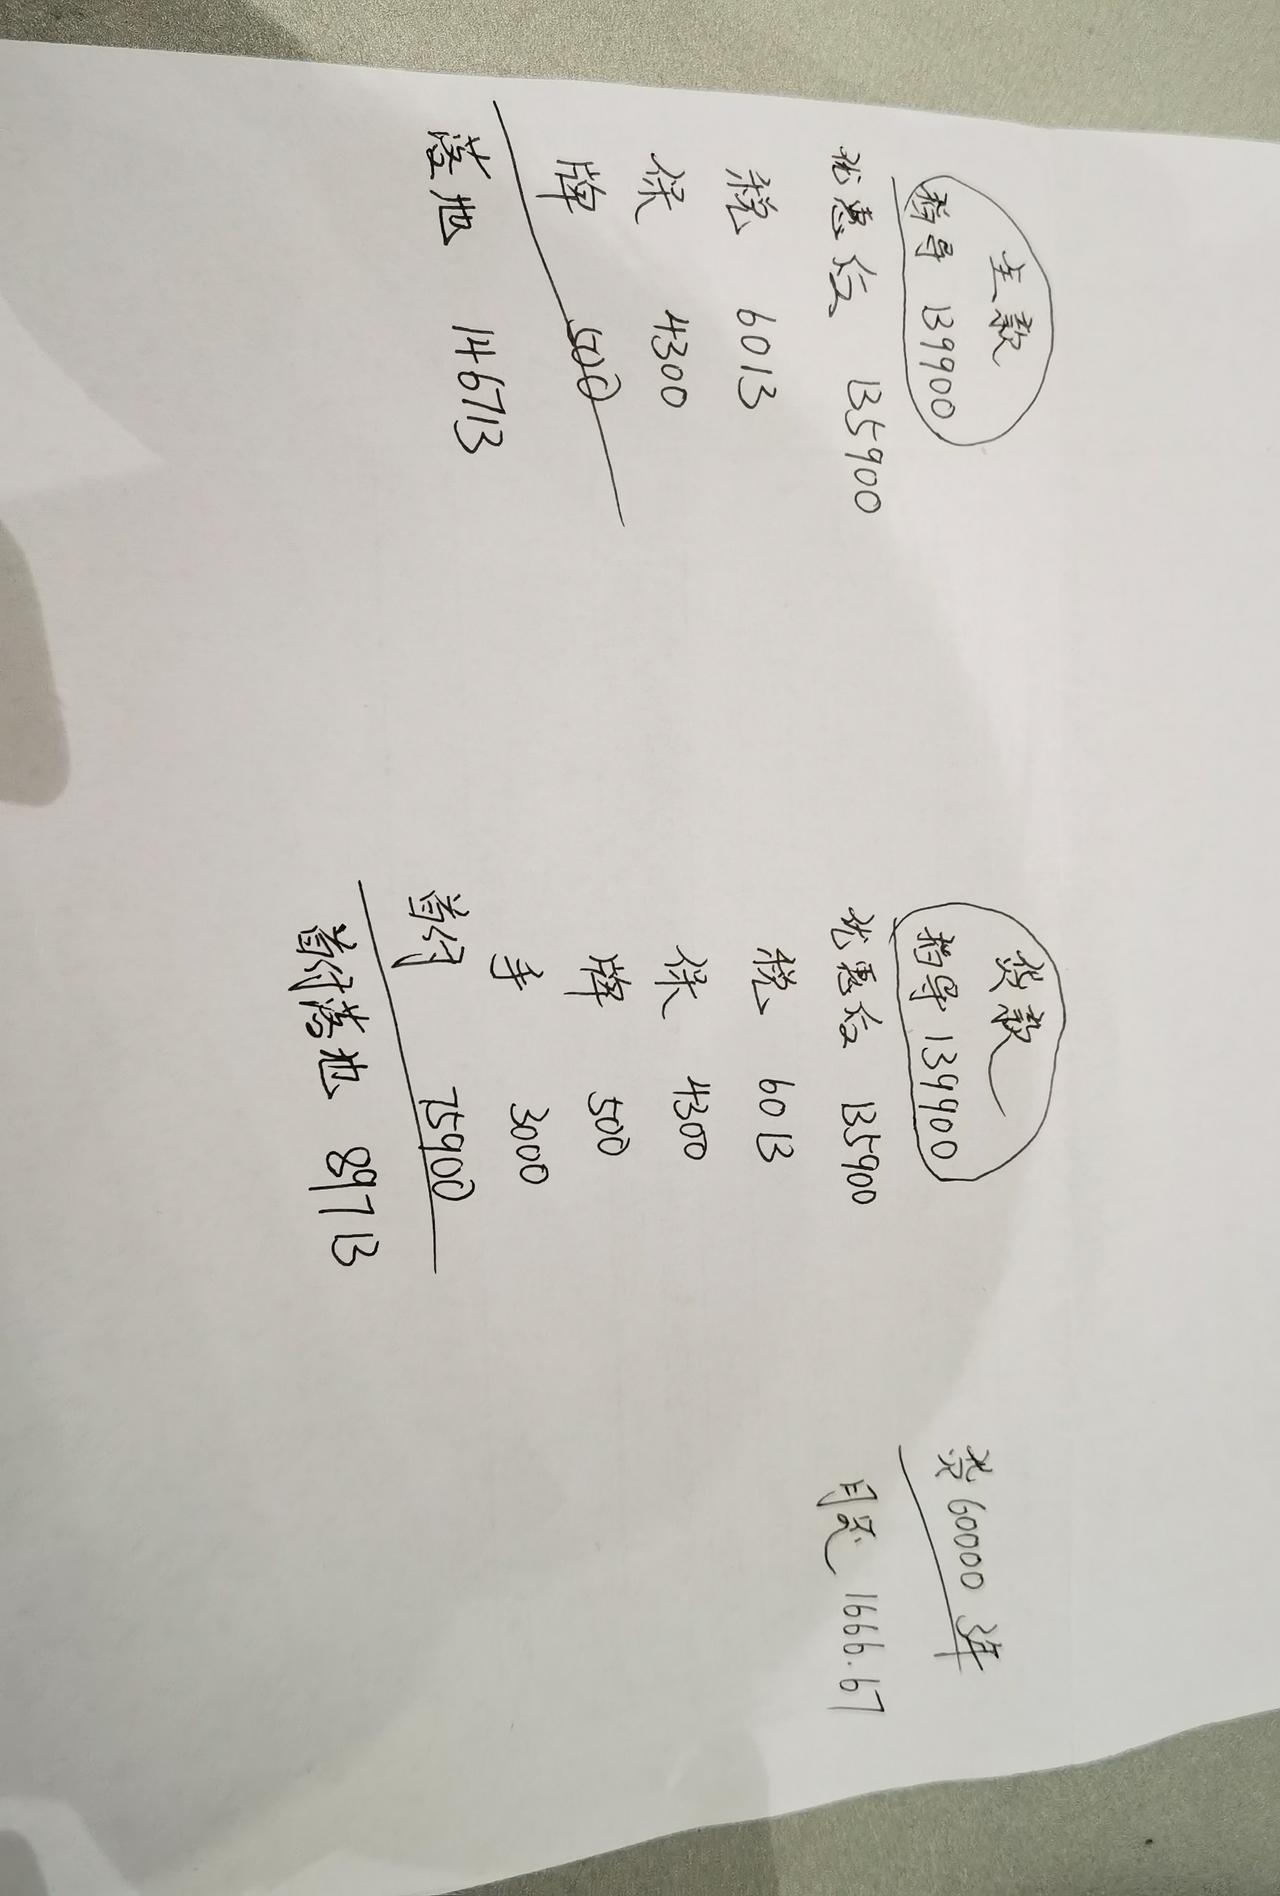 全款
指导 139900
优惠后 135900
税 6013
保 4300
牌 500
落地 146713
贷款
指导 139900
优惠后 135900
税 6013
保 4300
牌 500
手 3000
首付 75900
首付落地 89713
贷60000 3年
月还 1666.67